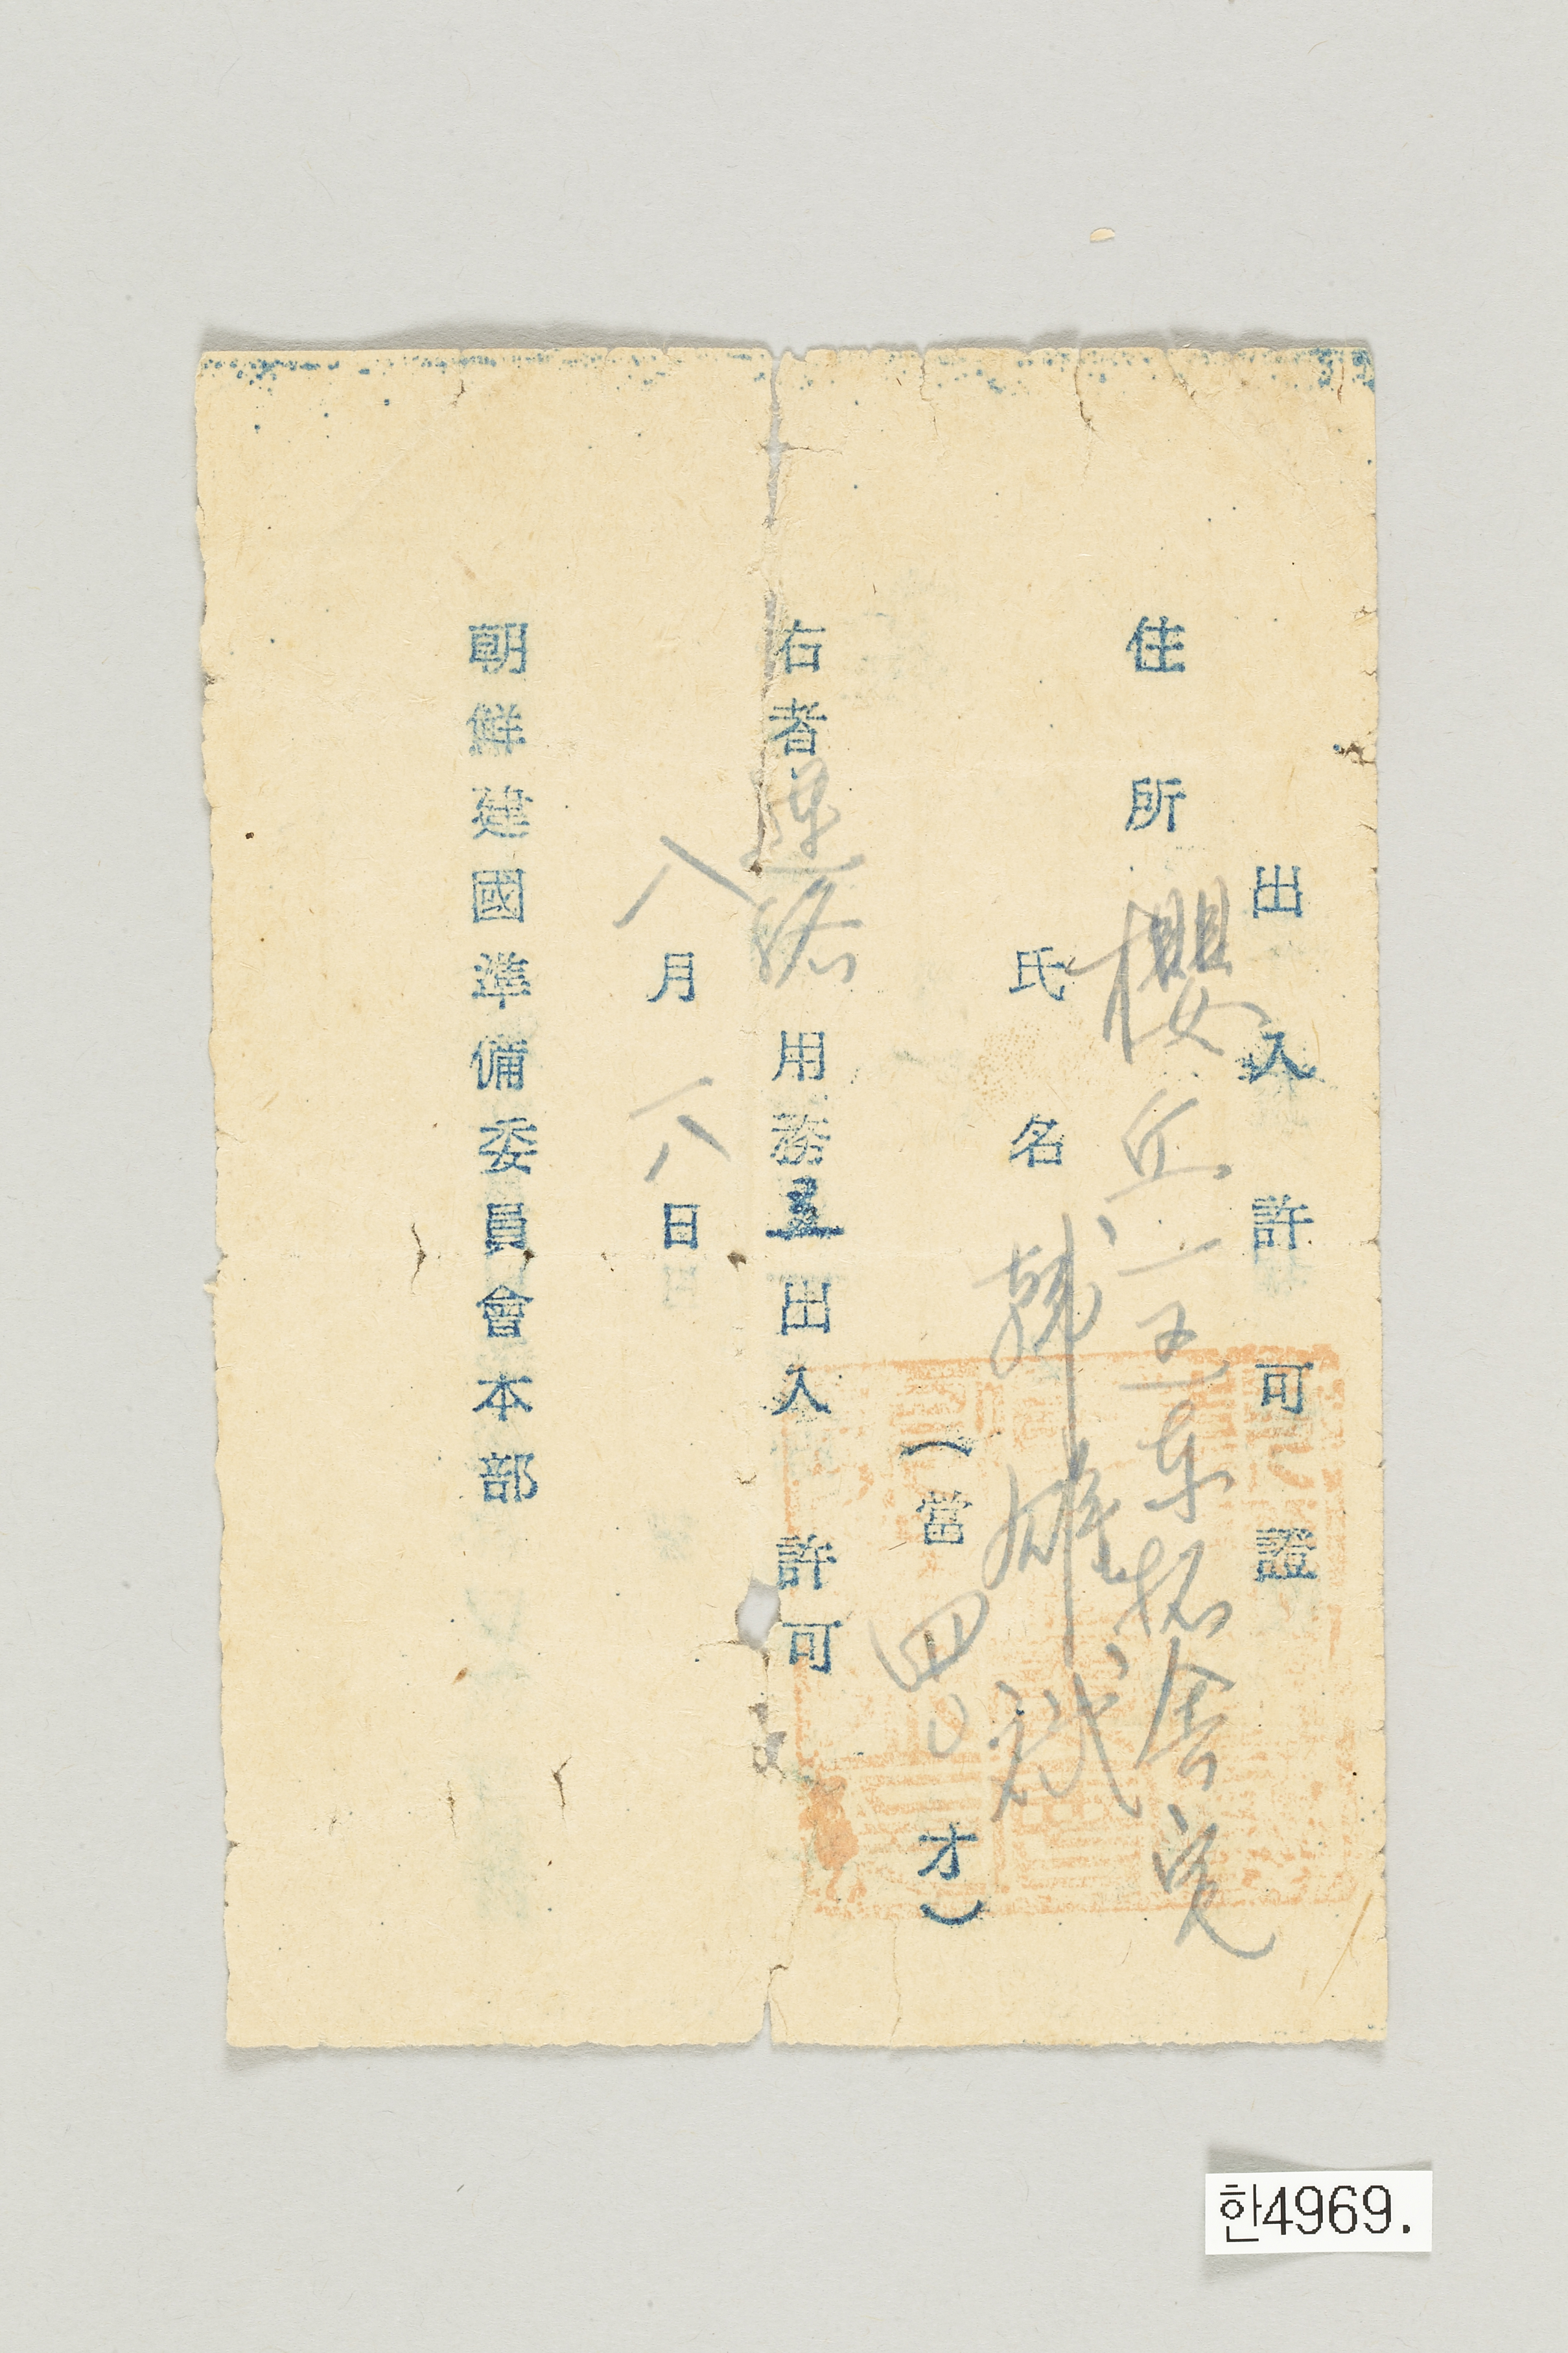 出入許可證
住所 櫻丘一五東拓舍宅
氏名 韓雄弍
(當四〇才)
右者連絡用務 出入許可
八月六日
朝鮮建國準備委員會本部
한4969.